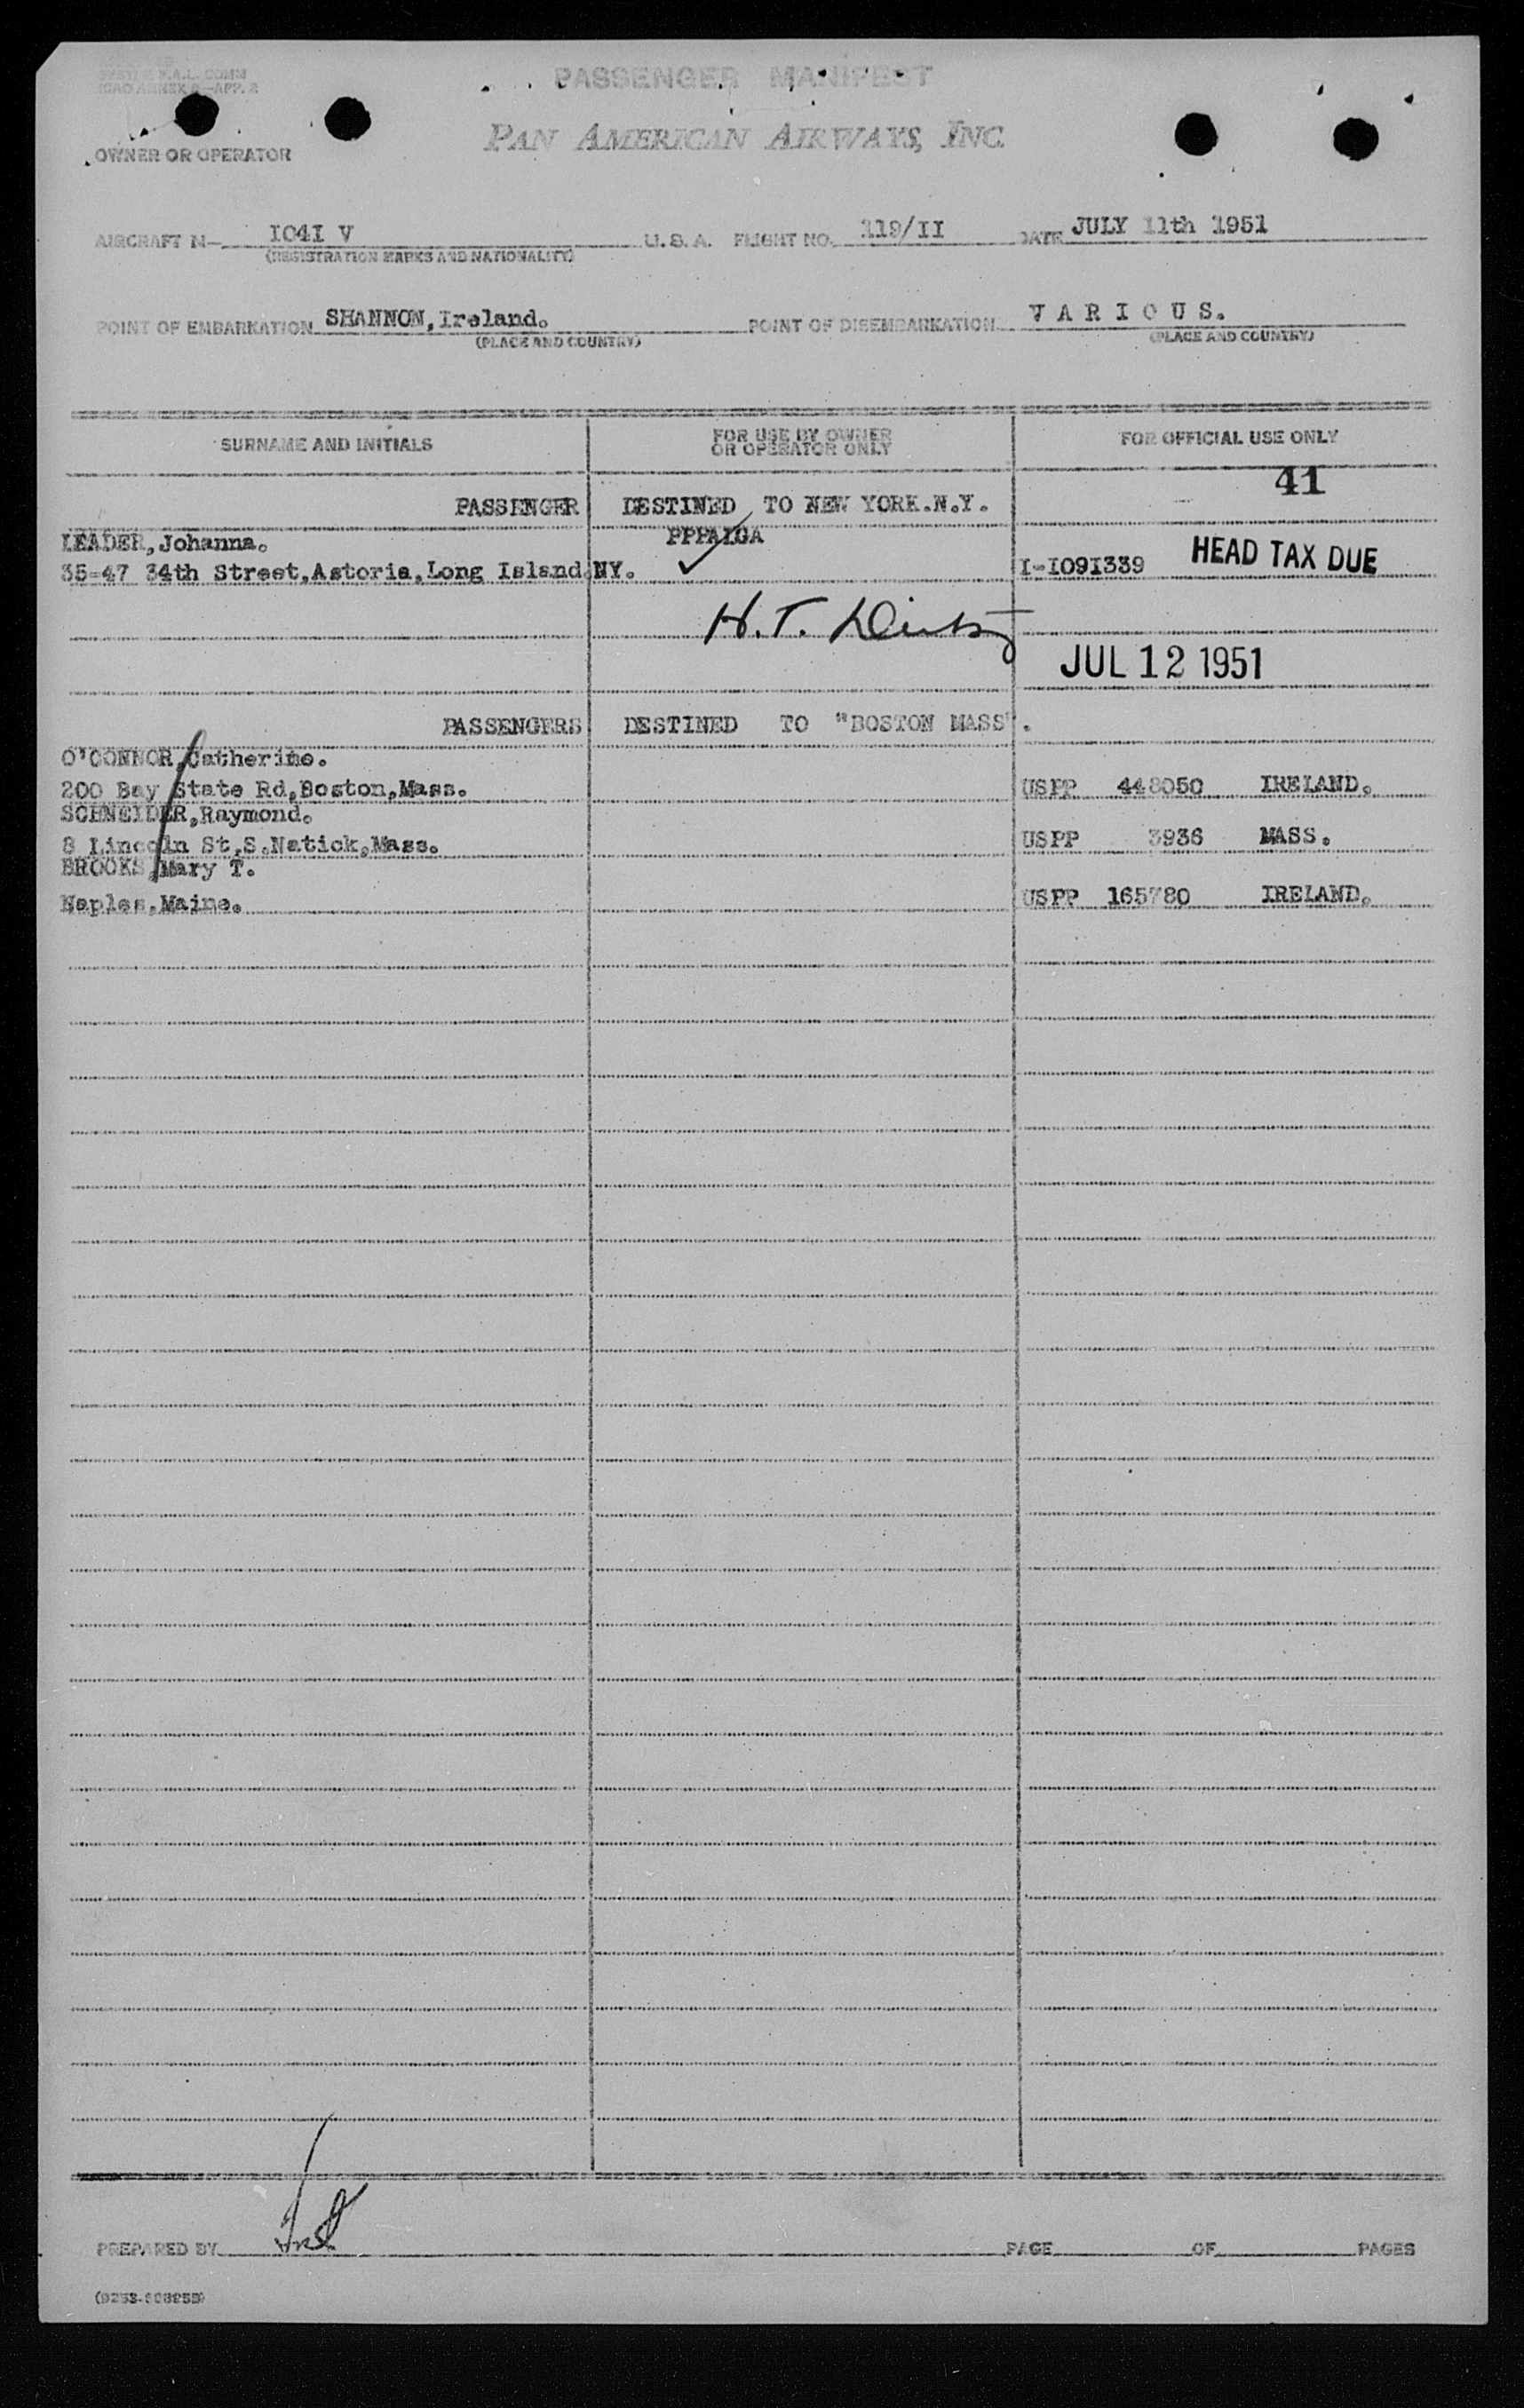 PASSENGER MANIFEST
ICAO ANNEX 9—APP. 2
PAN AMERICAN AIRWAYS, INC.
OWNER OR OPERATOR
AIRCRAFT N— I04I V U.S.A. FLIGHT NO. 119/II DATE JULY 11th 1951
(REGISTRATION MARKS AND NATIONALITY)
POINT OF EMBARKATION SHANNON,Ireland. POINT OF DISEMBARKATION V A R I O U S.
(PLACE AND COUNTRY) (PLACE AND COUNTRY)
SURNAME AND INITIALS FOR USE BY OWNER OR OPERATOR ONLY FOR OFFICIAL USE ONLY
41
PASSENGER DESTINED TO NEW YORK.N.Y.
LEADER,Johanna.
35=47 34th Street,Astoria,Long Island NY. I-I09I339 HEAD TAX DUE
H.T.
JUL 12 1951
PASSENGERS DESTINED TO "BOSTON MASS".
O'CONNOR,Catherine.
200 Bay State Rd,Boston,Mass. USPP 448050 IRELAND.
SCHNEIDER,Raymond.
8 Lincoln St,S.Natick,Mass. USPP 3936 MASS.
BROOKS,Mary T.
Naples,Maine. USPP 165780 IRELAND.
PREPARED BY PAGE OF PAGES